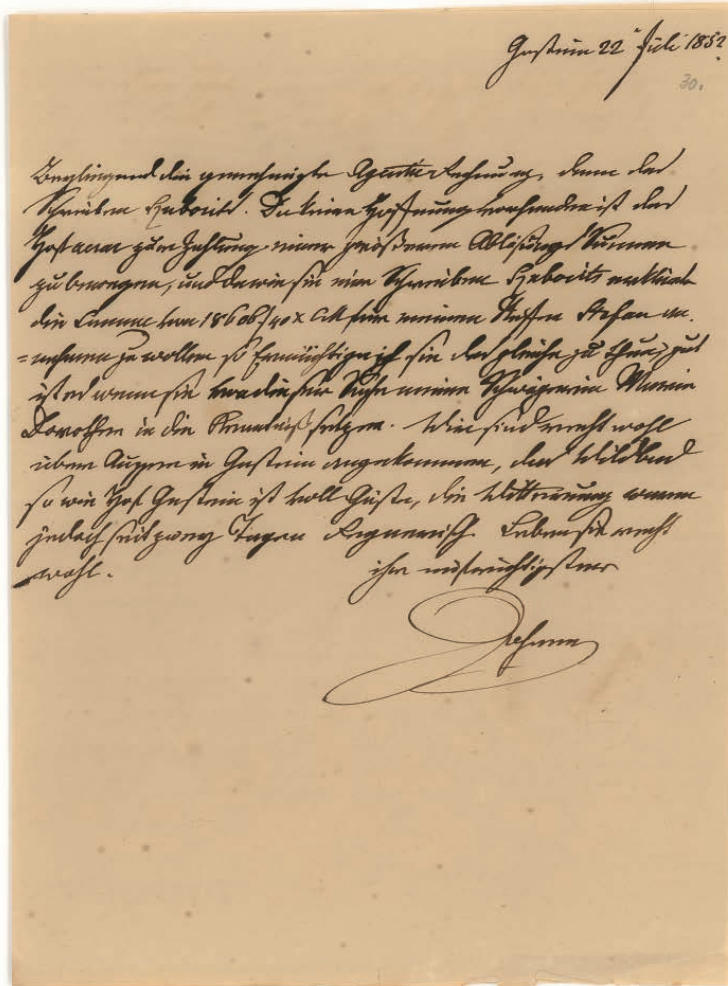 Gastein 22 Juli 1852
30.
Beyliegend die genehmigte Agentie Rechnung, dann das
Schreiben. Da keine Hoffnung vorhanden ist das
zur Zahlung einer größeren Ablösungs Summe
zu bewegen, und da wie sie im Schreiben erklärt
die Summe von für meinen Neffen Stefan an-
=nehmen zu wollen so Ermächtige ich sie das gleiche zu thun, gut
ist es wenn sie von dieser Sache meine Schwägerin Marie
Dorothea in die Kenntniß setzen. Wir sind recht wohl
über Aussee in Gastein angekommen, das Wildbad
so wie Hof Gastein ist voll Gäste, die Witterung
jedoch seit zwey Tagen Regnerisch. Leben sie recht
wohl. ihr aufrichtigster
Johann